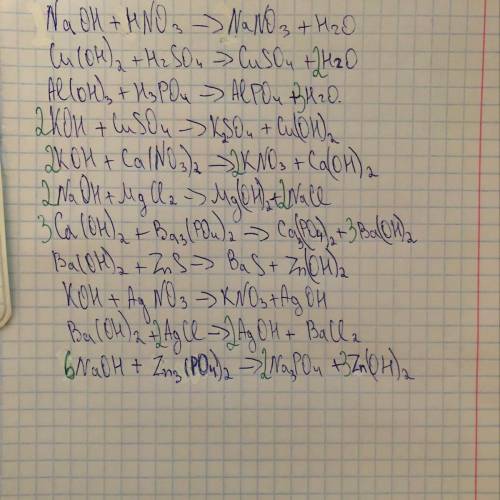 NaOH + HNO₃ → NaNO₃ + H₂O
Cu(OH)₂ + H₂SO₄ → CuSO₄ + 2H₂O
Al(OH)₃ + H₃PO₄ → AlPO₄ + 3H₂O.
2KOH + CuSO₄ → K₂SO₄ + Cu(OH)₂
2KOH + Ca(NO₃)₂ → 2KNO₃ + Ca(OH)₂
2NaOH + MgCl₂ → Mg(OH)₂ + 2NaCl
3Ca(OH)₂ + Ba₃(PO₄)₂ → Ca₃(PO₄)₂ + 3Ba(OH)₂
Ba(OH)₂ + ZnS → BaS + Zn(OH)₂
KOH + AgNO₃ → KNO₃ + AgOH
Ba(OH)₂ + 2AgCl → 2AgOH + BaCl₂
6NaOH + Zn₃(PO₄)₂ → 2Na₃PO₄ + 3Zn(OH)₂